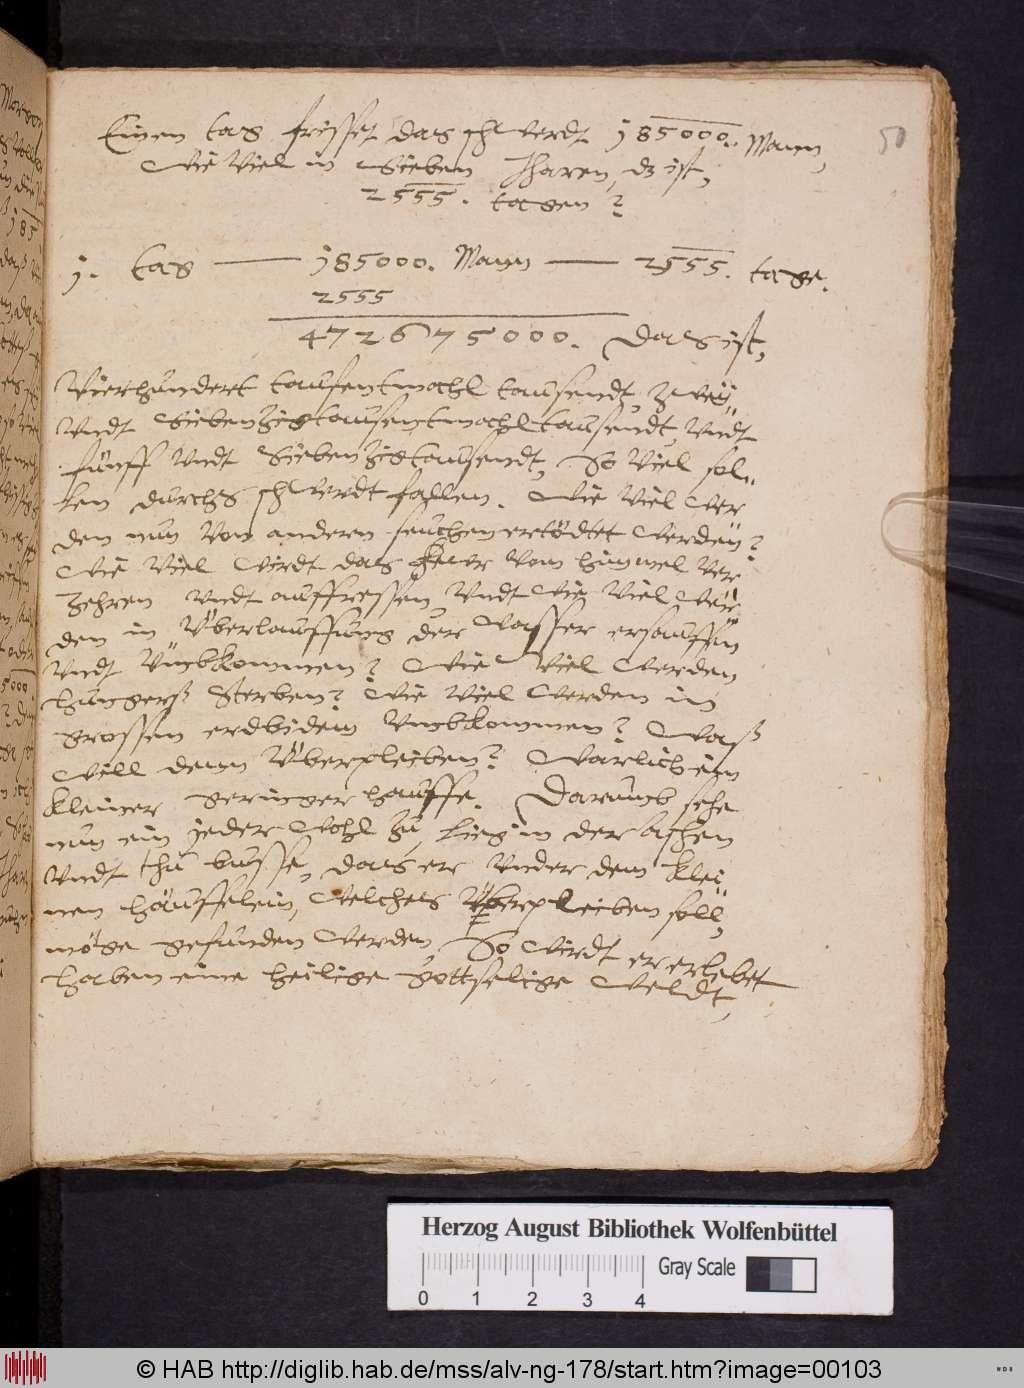 50
Einen tag frisset das schwerdt 185000. Mann,
Wie viel in Sieben Jharen, dz ist,
2555. tagen?
1. tag — 185000. Mann — 2555. tage.
2555
472675000. Das ist,
Vierhundert tausentmahl tausendt, zwey
Vndt Siebenzigtausentmahl tausendt, Vndt
fünff Vndt Siebenzigtausendt, So Viel sol-
len durchs schwerdt fallen. Wie Viel Wer
den nun Von anderen seuchen ertödtet Werden?
Wie Viel Wirdt das feuer Vom himmel Ver
Zehren Vndt auffressen, Vndt Wie Viel Wer
den in Vberlauffung der Wasser ersauffen
Vndt Vmbkommen? Wie Viel Werden
hungerß Sterben? Wie Viel Werden in
grossen erdbidem Vmbkommen? Waß
Will denn Vberpleiben? Warlich ein
kleiner geringer hauffe. Darumb sehe
nun ein jeder Wohl zu, lieg in der aschen
Vndt thu busse, das er Vnder dem klei
nen häuffelein, Welches Vberpleiben soll,
möge gefunden Werden, So Wirdt er erlebet
haben eine heilige gottselige Weldt,
Herzog August Bibliothek Wolfenbüttel
Gray Scale
0 1 2 3 4
© HAB http://diglib.hab.de/mss/alv-ng-178/start.htm?image=00103